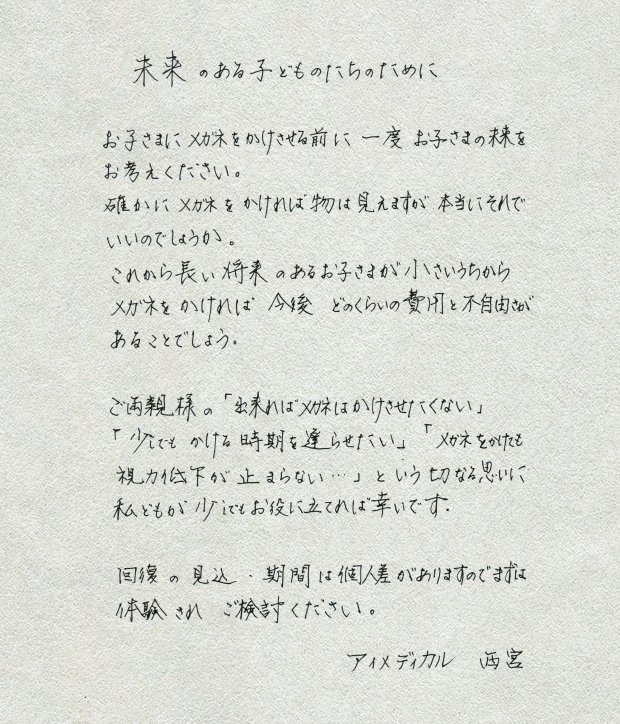 未来のある子どものたちのために
お子さまにメガネをかけさせる前に一度お子さまの未来を
お考えください。
確かにメガネをかければ物は見えますが本当にそれで
いいのでしょうか。
これから長い将来のあるお子さまが小さいうちから
メガネをかければ今後どのくらいの費用と不自由さが
あることでしょう。
ご両親様の「出来ればメガネはかけさせたくない」
「少しでもかける時期を遅らせたい」「メガネをかけても
視力低下が止まらない…」という切なる思いに
私どもが少しでもお役に立てれば幸いです.
回復の見込・期間は個人差がありますのでまずは
体験されご検討ください。
アイメディカル 西宮